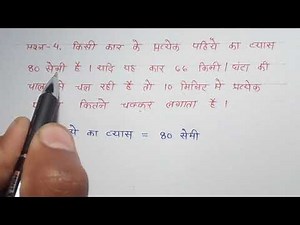 प्रश्न-4. किसी कार के प्रत्येक पहिये का व्यास
80 सेमी है । यदि यह कार 66 किमी / घंटा की
चाल से चल रही है तो 10 मिनिट में प्रत्येक
कितने चक्कर लगाता है ।
का व्यास = 80 सेमी